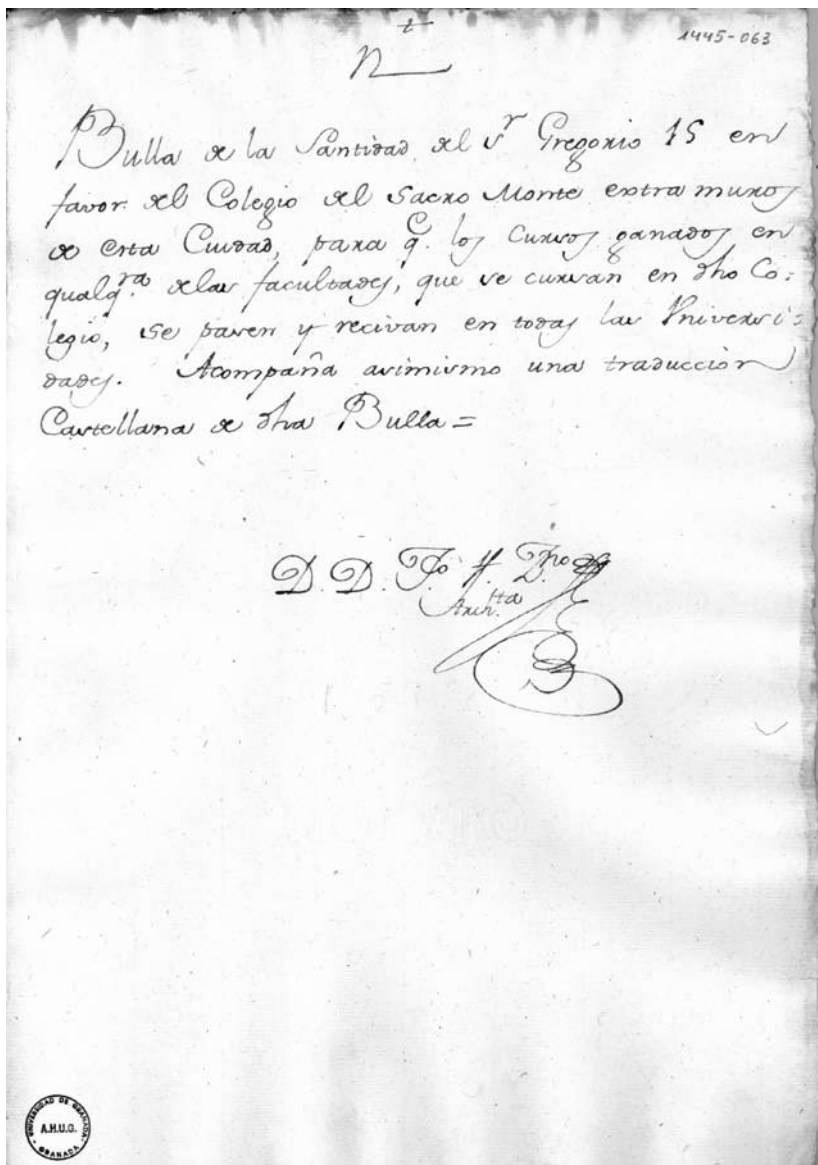 1445-063
N
Bulla de la Santidad del Sr Gregorio 15 en
favor del Colegio del Sacro Monte extra muros
de esta Ciudad, para q.e los Cursos ganados en
qualq.ra de las facultades, que se cursan en dho Co=
legio, se pasen y recivan en todas las Universi=
dades. Acompaña asimismo una traduccion
Castellana de dha Bulla =
D. D.
Arch.tta
UNIVERSIDAD DE GRANADA
A.H.U.G.
GRANADA